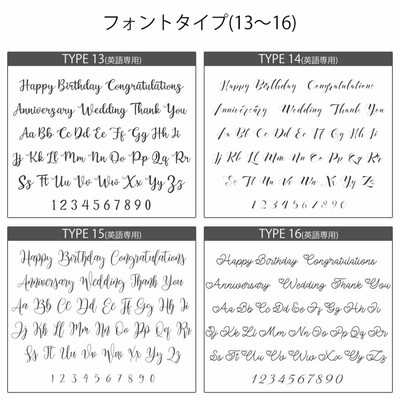 フォントタイプ(13〜16)
TYPE 13(英語専用)
Happy Birthday Congratulations
Anniversary Wedding Thank You
Aa Bb Cc Dd Ee Ff Gg Hh Ii
Jj Kk Ll Mm Nn Oo Pp Qq Rr
Ss Tt Uu Vv Ww Xx Yy Zz
1 2 3 4 5 6 7 8 9 0
TYPE 14(英語専用)
Happy Birthday Congratulations
Anniversary Wedding Thank You
Aa Bb Cc Dd Ee Ff Gg Hh Ii
Jj Kk Ll Mm Nn Oo Pp Qq Rr
Ss Tt Uu Vv Ww Xx Yy Zz
1 2 3 4 5 6 7 8 9 0
TYPE 15(英語専用)
Happy Birthday Congratulations
Anniversary Wedding Thank You
Aa Bb Cc Dd Ee Ff Gg Hh Ii
Jj Kk Ll Mm Nn Oo Pp Qq Rr
Ss Tt Uu Vv Ww Xx Yy Zz
1 2 3 4 5 6 7 8 9 0
TYPE 16(英語専用)
Happy Birthday Congratulations
Anniversary Wedding Thank You
Aa Bb Cc Dd Ee Ff Gg Hh Ii
Jj Kk Ll Mm Nn Oo Pp Qq Rr
Ss Tt Uu Vv Ww Xx Yy Zz
1 2 3 4 5 6 7 8 9 0